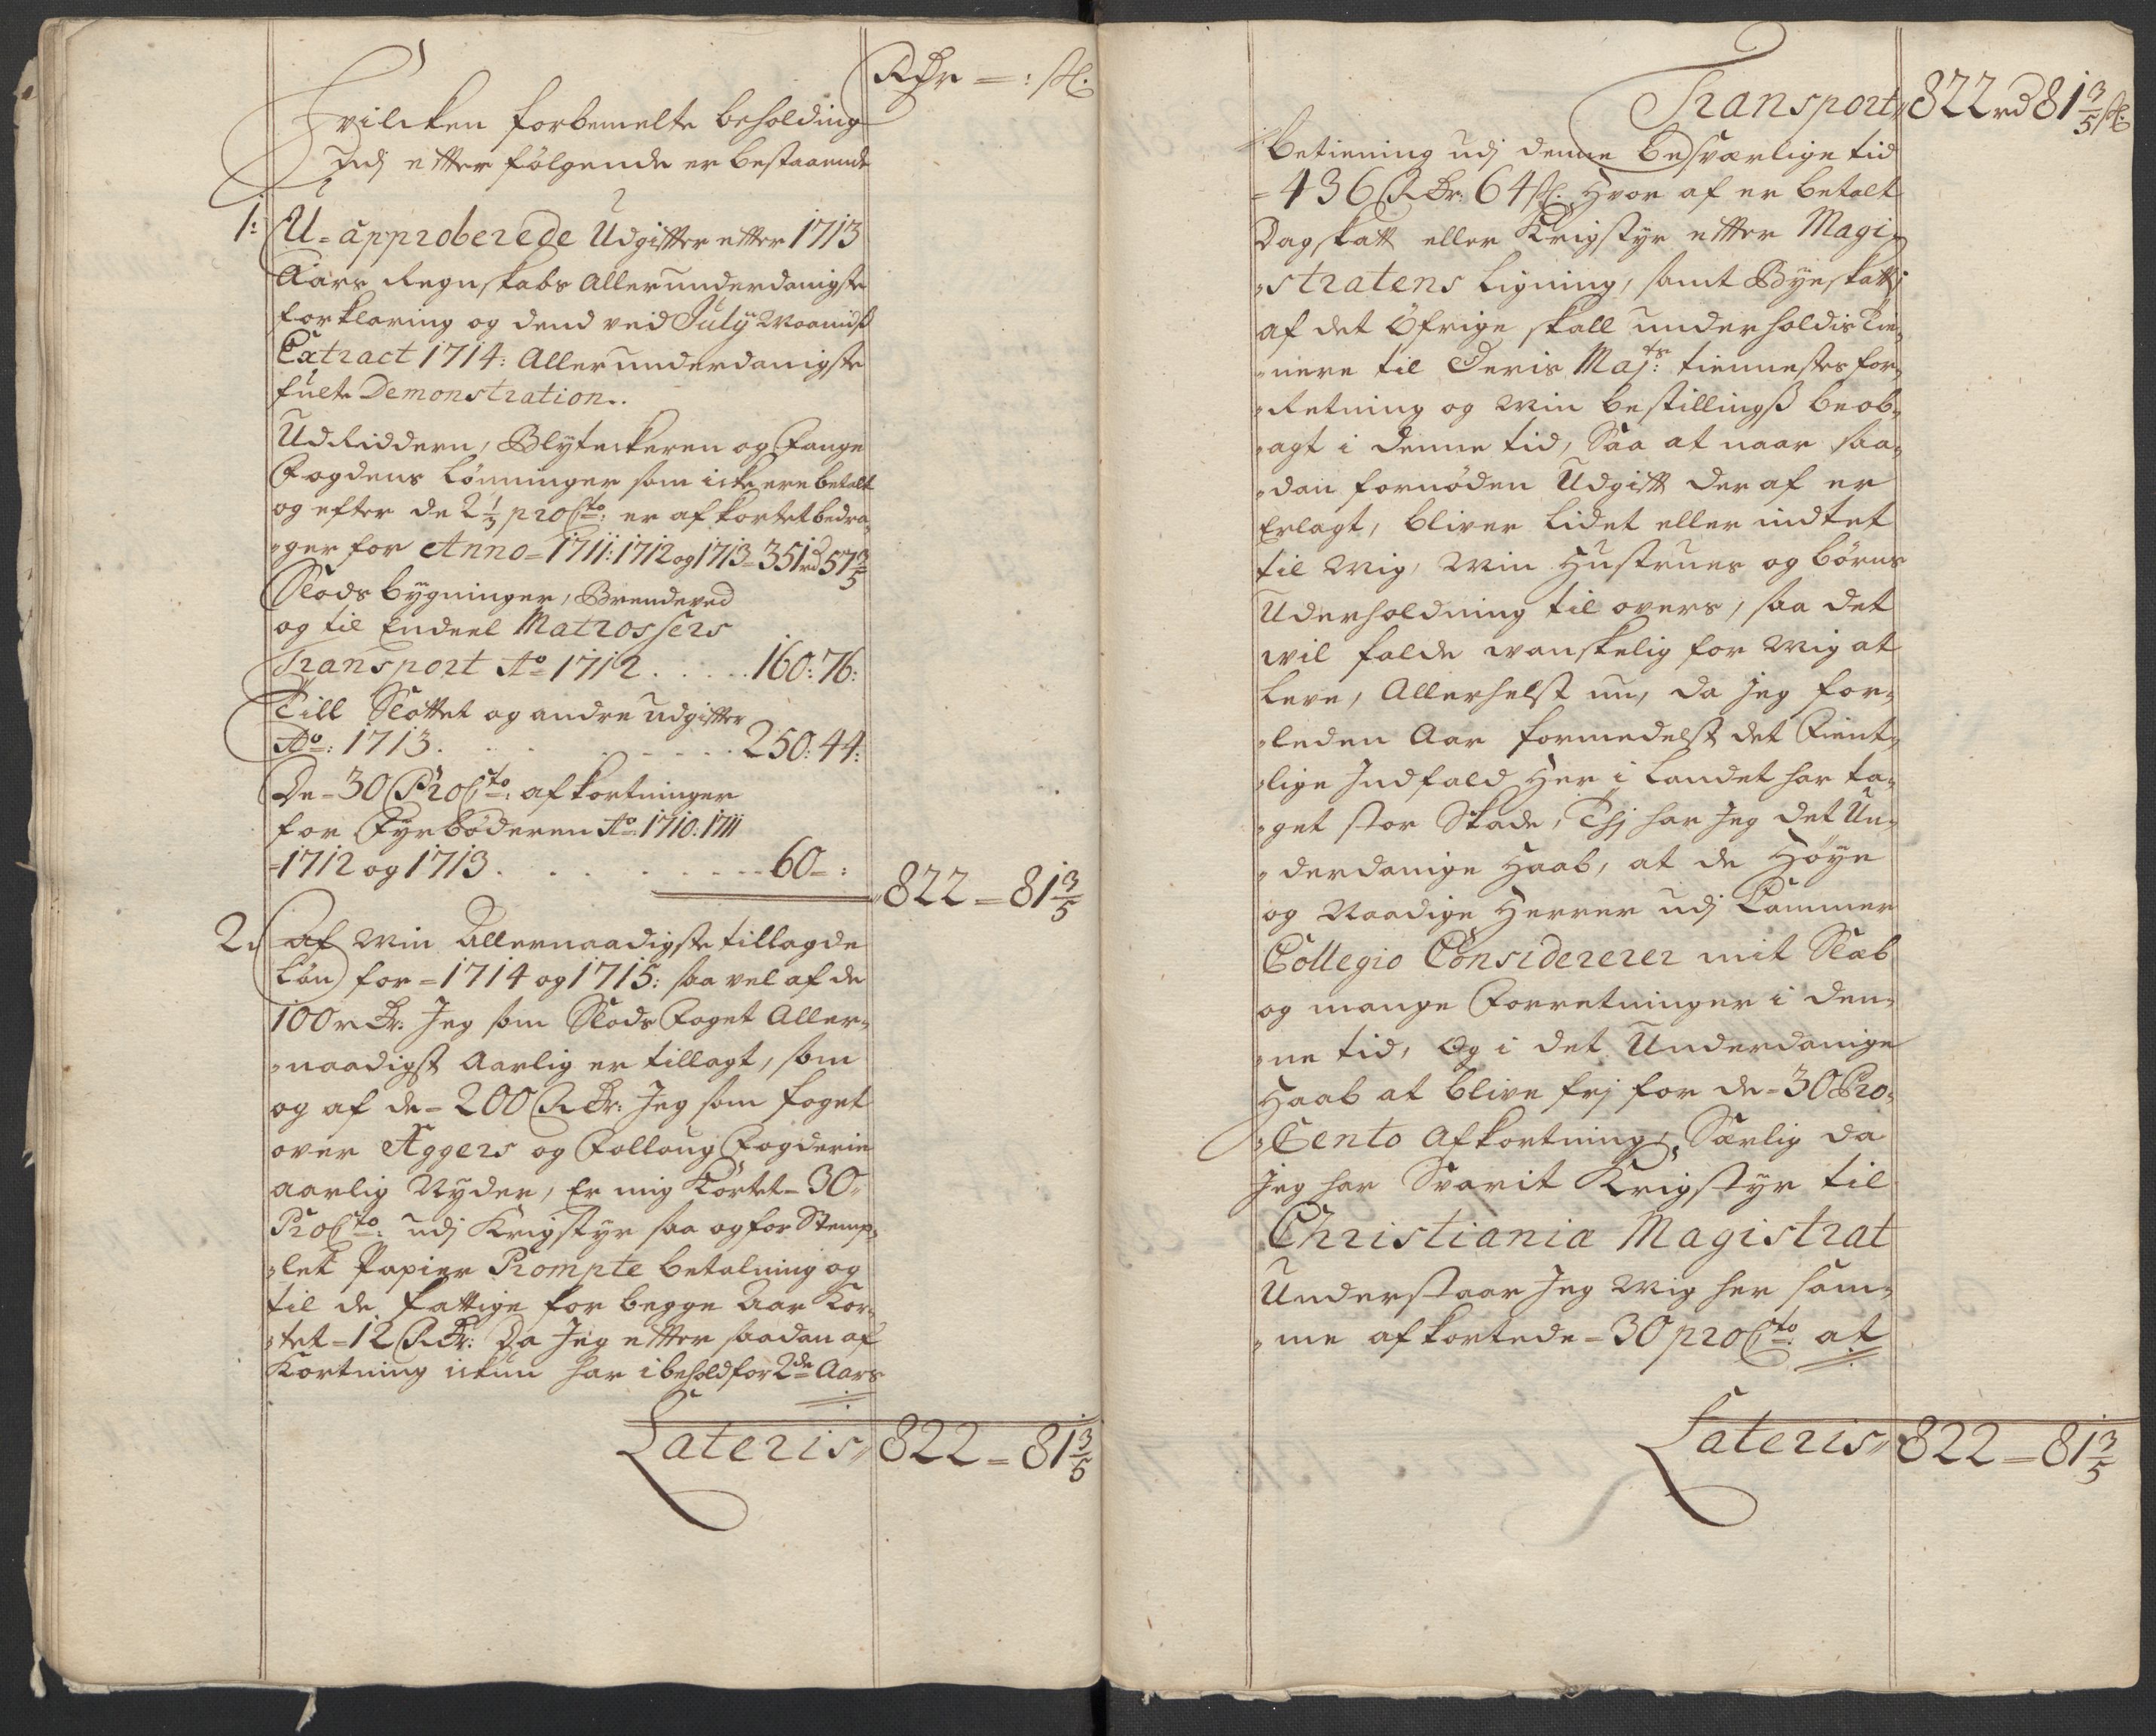 Rdr = : sk:
Hvilcken forbemelte beholding
Udj efter følgende er bestaaende
1: U-approberede Udgifter efter 1713
Aars Regnskabs Allerunderdanigste
forklaring og dend veid July Maanids
Extract 1714: Allerunderdanigste
fulte Demonstration.
UdRiddern, Blyteckeren og Fange
Fogdens Lønninger som icke ere betalt
og efter de 2 1/3 pro Cto: er afkortet bedra-
ger for Anno=1711:1712 og 1713=351 rd 57 3/5
Slods bygninger, Brendeved
og til Endeel Matrossers
Transport Ao 1712 . . . . . 160:76:
Till Slottet og andre udgifter
Ao: 1713. . . . . . . 250:44:
De=30 Pro Cto: afkortninger
for Fyrbøderen Ao 1710:1711
=1712 og 1713. . . . . . 60=:
822=81 3/5
2. Af min Allernaadigste tillagde
Løn for=1714 og 1715: saa vel af de
100 rdr: Jeg som Slods Foget Aller-
naadigst Aarlig er tillagt, som
og af de=200 Rdr: Jeg som foget
over Aggers og Folloug Fogderie
aarlig Nyder, Er mig Kortet=30
Pro Cto: udj Krigstyr saa og for Stemp-
let Papier Prompte betalning og
til de fattige for begge Aar Kor-
tet=12 Rdr: Da Jeg efter saadan af
Kortning ickun har i behold for 2de Aars
Lateris 822=81 3/5
Transport 822 rd 81 3/5 sk:
betiening udj denne besværlige tid
=436 Rdr: 64 sk: Hvor af er betalt
Dagskatt eller Krigstyr efter Magi-
stratens Ligning, samt Byeskatt;
af det Øfrige skall underholdis Tie-
nere til Deris Majts: tiennestes for-
Retning og Min bestillings beob-
agt i denne tid, Saa at naar saa-
dan fornøden Udgift der af er
Erlagt, bliver lidet eller indtet
til Mig, Min Hustrues og børns
Underholdning til overs, saa det
vil falde vanskelig for Mig at
leve, Allerhelst nu, da Jeg for-
leden Aar formedelst det Fient-
lige Indfald Her i Landet har ta-
get stor Skade, Thj har Jeg det Un-
derdanige Haab, at de Høye
og Naadige Herrer udj Cammer
Collegio Considererer mit Slæb
og mange Forretninger i den-
ne tid, Og i det Underdanige
Haab at blive frj for de=30 Pro-
Cento Afkortning, Særlig da
Jeg har Svarit Krigstyr til
Christiania Magistrat
Understaar Jeg Mig her sam-
me afkortede=30 pro Cto: at
Lateris 822=81 3/5